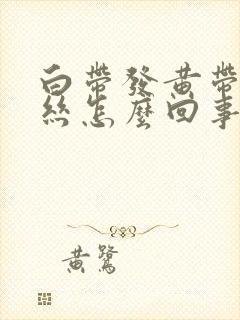 白帶發黃帶
絲怎麼回事
黃鷺